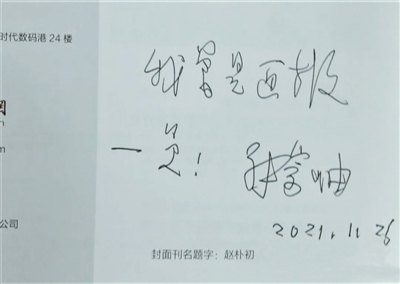 时代数码港24楼
我曾是画报
一员！
2021.11.26
公司
封面刊名题字：赵朴初